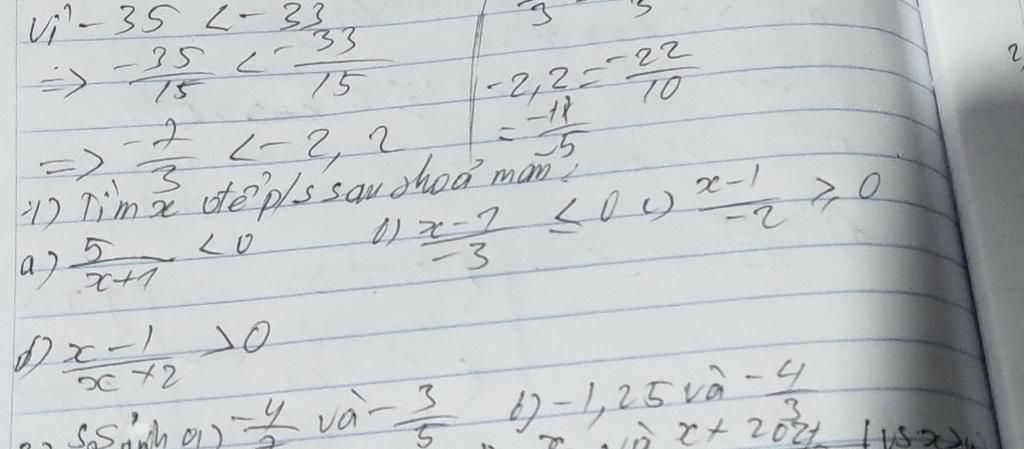 Vì -35 < -33
=> -35/15 < -33/15
=> -7/3 < -2,2
-2,2 = -22/10
= -11/5
1) Tìm x để p/s sau thoả mãn:
a) 5/x+1 < 0 b) x-7/-3 ≤ 0 c) x-1/-2 ≥ 0
d) x-1/x+2 > 0
So Sánh a) và -3/5 b) -1,25 và -4/3